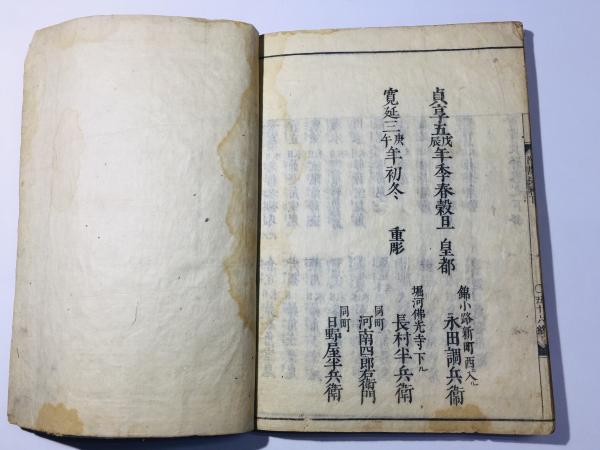 貞享五戊辰年季春穀旦 皇都
錦小路新町西入ル
永田調兵衞
寛延三庚午年初冬 重彫
堀河佛光寺下ル
長村半兵衛
同町
河南四郎右衛門
同町
日野屋半兵衛